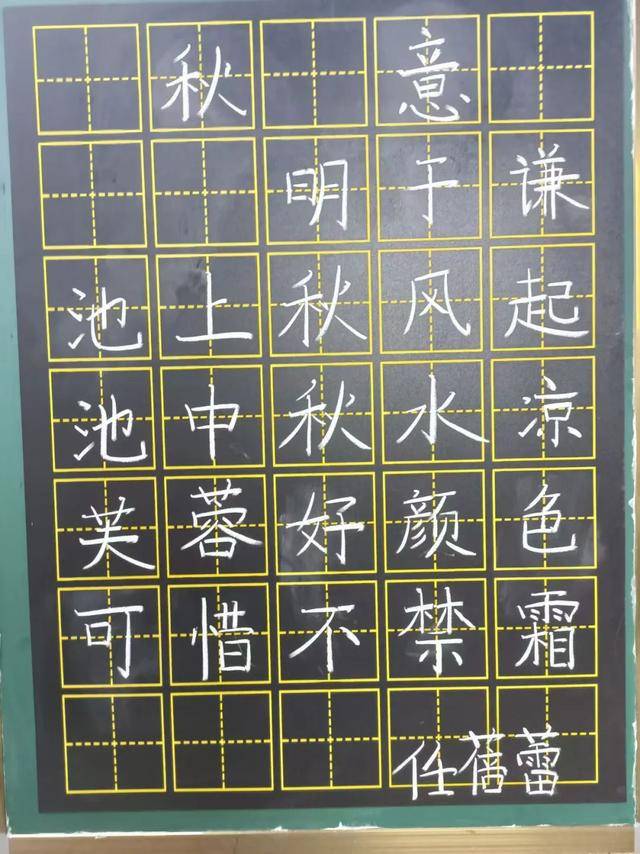 秋意
明于谦
池上秋风起
池中秋水凉
芙蓉好颜色
可惜不禁霜
任蓓蕾